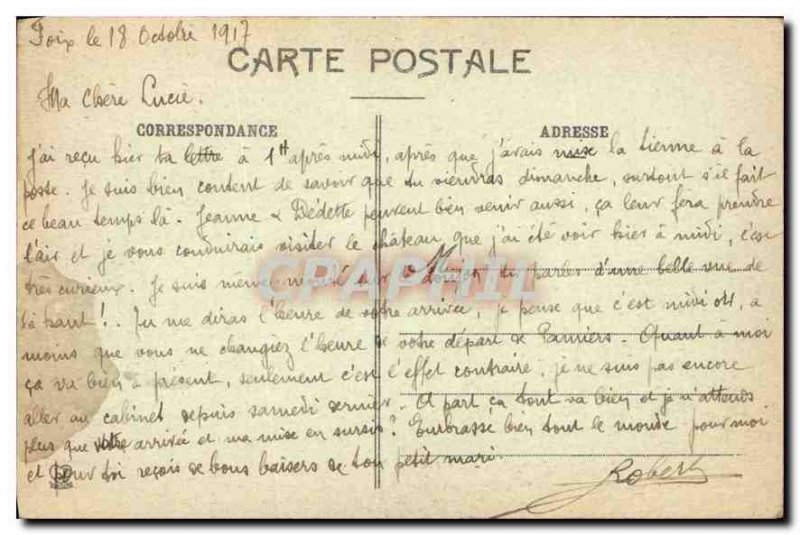 Foix le 18 Octobre 1917
CARTE POSTALE
Ma chère Lucie.
CORRESPONDANCE
ADRESSE
J'ai reçu hier ta lettre à 1H après midi, après que j'avais mise la tienne à la
poste. Je suis bien content de savoir que tu viendras dimanche, surtout s'il fait
ce beau temps là. Jeanne & Dédette peuvent bien venir aussi, ça leur fera prendre
l'air et je vous conduirais visiter le château, que j'ai été voir hier à midi, c'est
très curieux. Je suis même monté sur le donjon tu parles d'une belle vue de
là haut!. Tu me diras l'heure de votre arrivée, je pense que c'est midi à
moins que vous ne changiez l'heure de votre départ de Pamiers. Quant à moi
ça va bien à présent, seulement c'est l'effet contraire, je ne suis pas encore
aller au cabinet depuis samedi dernier. A part ça tout va bien et je n'attends
plus que votre arrivée et ma mise en sursis? Embrasse bien tout le monde pour moi
et pour toi reçois de bons baisers de ton petit mari.
Robert
CPAPHIL